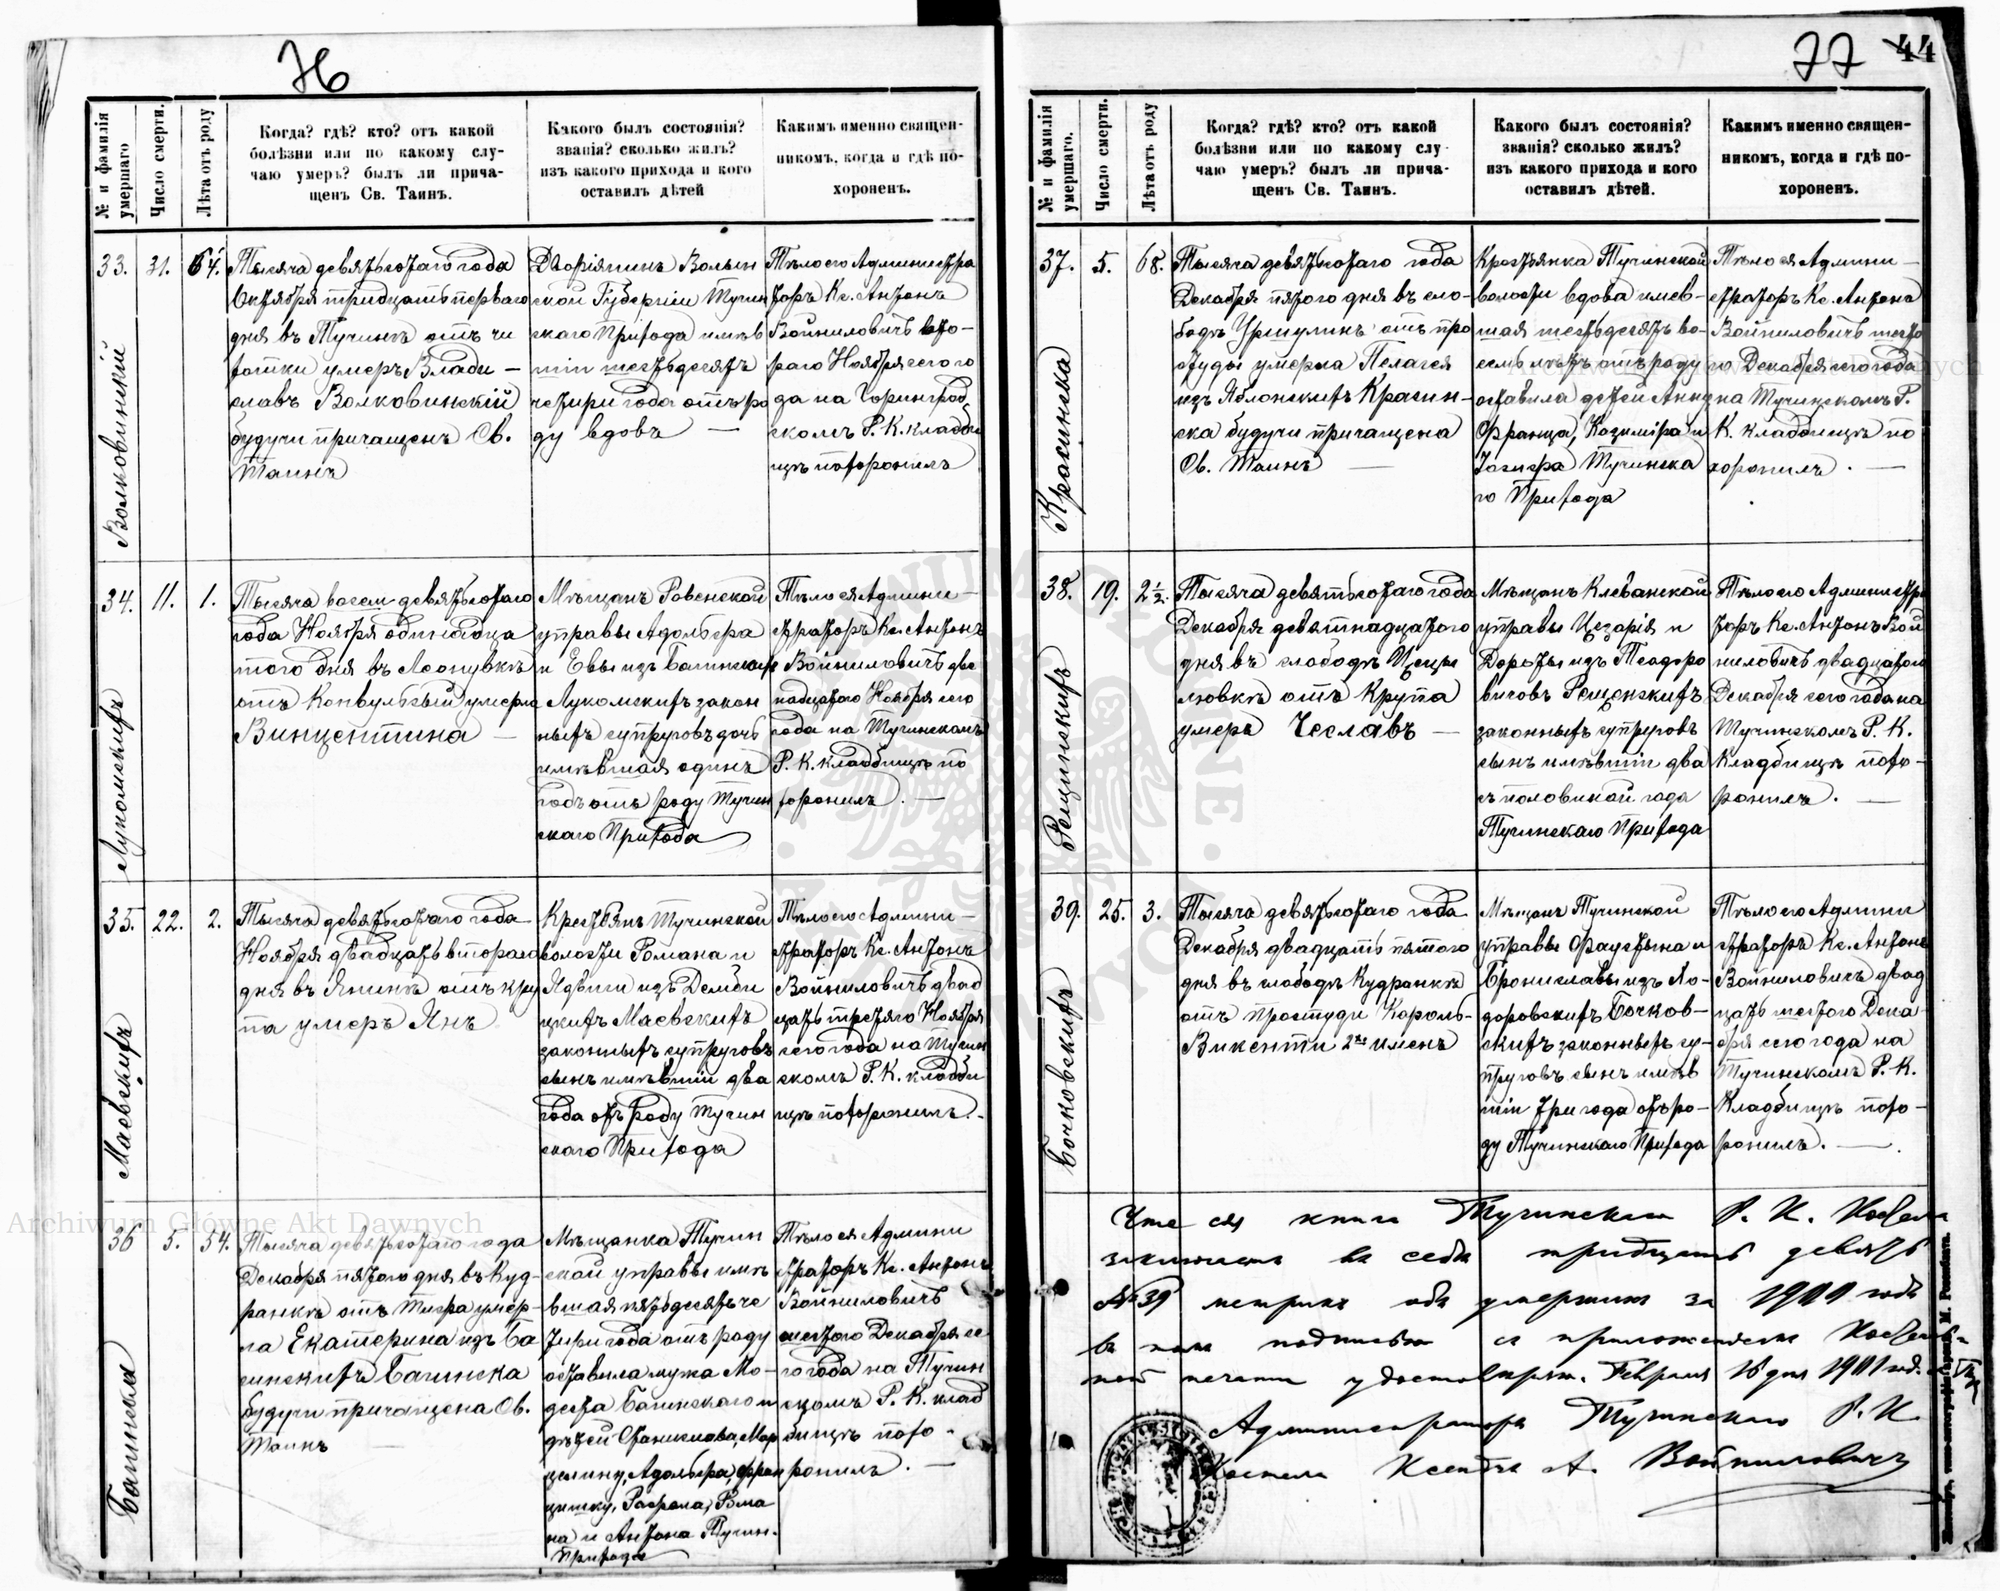 76
№ и фамилія умершаго
Число смерти.
Лѣта отъ роду
Когда? гдѣ? кто? отъ какой
болѣзни или по какому слу-
чаю умеръ? былъ ли прича-
щенъ Св. Таинъ.
Какого былъ состоянія?
званія? сколько жилъ?
изъ какого прихода и кого
оставилъ дѣтей
Какимъ именно священ-
никомъ, когда и гдѣ по-
хороненъ.
33.
Волковинскій
31.
64.
Тысяча девятьсотаго года
Октября тридцать перваго
дня въ Тучинѣ отъ чи
хотки умеръ Влади-
славъ Волковинскій
будучи причащенъ Св.
Таинъ
Дворянинъ Волын
ской Губерніи Тучин
скаго Прихода имѣв
шій шестьдесятъ
четыри года отъ ро
ду вдовъ
Тѣло его Администра
торъ Кс. Антонъ
Войниловичъ вто-
раго Ноября сего го
да на Горинград
скомъ Р. К. кладби
щѣ похоронилъ
34.
Лукомскихъ
11.
1.
Тысяча восем девятьсотаго
года Ноября одинадца
того дня въ Леоновкѣ
отъ Конвульсый умерла
Винцентина
Мѣщанъ Ровенской
управы Адольфа
и Евы изъ
Лукомскихъ закон
ныхъ супруговъ дочь
имѣвшая одинъ
годъ отъ роду Тучин
скаго Прихода
Тѣло ея Админи-
страторъ Кс. Антонъ
Войниловичъ две
надцатого Ноября сего
года на Тучинскомъ
Р. К. кладбищѣ по
хоронилъ.
35.
Маевскихъ
22.
2.
Тысяча девятьсотаго года
Ноября двадцать второго
дня въ Янинѣ отъ кру
па умеръ Янъ
Крестьянъ Тучинской
волости Романа и
Ядвиги изъ Демби
цкихъ Маевскихъ
законныхъ супруговъ
сынъ имѣвшій два
года отъ роду Тучин
скаго Прихода
Тѣло его Админи-
страторъ Кс. Антонъ
Войниловичъ двад
цать третяго Ноября
сего года на Тучин
скомъ Р. К. кладби
щѣ похоронилъ.
36
Багинская
5.
54.
Тысяча девятьсотаго года
Декабря пятого дня въ Куд-
ранкѣ отъ Тифа умер-
ла Екатерина изъ Ба
гинскихъ Багинска
будучи причащена Св.
Таинъ
Мѣщанка Тучин
ской управы имѣ
вшая пятьдесятъ че
тыри года отъ роду
оставила мужа Мо-
деста Багинскаго и
дѣтей Станислава, Мар
целину, Адольфа, Фран
цишку, Рафала, Рома
на и Антона Тучин.
Прихода
Тѣло ея Админи
страторъ Кс. Антонъ
Войниловичъ
шестого Декабря се
го года на Тучин
скомъ Р. К. клад
бищѣ похо-
ронилъ.
77 44
№ и фамилія умершаго.
Число смерти.
Лѣта отъ роду
Когда? гдѣ? кто? отъ какой
болѣзни или по какому слу-
чаю умеръ? былъ ли прича-
щенъ Св. Таинъ.
Какого былъ состоянія?
званія? сколько жилъ?
изъ какого прихода и кого
оставилъ дѣтей.
Какимъ именно священ-
никомъ, когда и гдѣ по-
хороненъ.
37.
Красинска
5.
68.
Тысяча девятьсотаго года
Декабря пятого дня въ сло-
бодѣ Уршулинъ отъ про
студы умерла Пелагея
изъ Яблонскихъ Красин-
ска будучи причащена
Св. Таинъ
Крестьянка Тучинской
волости вдова имев-
шая шестьдесятъ во-
семь лѣтъ отъ роду
оставила детей Анну
Франца, Казиміра и
Юзефа Тучинска
го Прихода
Тѣло ея Админи-
страторъ Кс. Антонъ
Войниловичъ шесто
го Декабря сего года
на Тучинскомъ Р.
К. кладбищѣ по
хоронилъ.
38.
Рещинскихъ
19.
2½.
Тысяча девятьсотаго года
Декабря девятнадцатого
дня въ слободѣ Цецы
ловкѣ отъ Крупа
умеръ Чеславъ
Мѣщанъ Клеванской
управы Цезарія и
Дороты изъ Теодоро
вичовъ Рещинскихъ
законныхъ супруговъ
сынъ имѣвшій два
съ половиной года
Тучинскаго Прихода
Тѣло его Администра
торъ Кс. Антонъ Вой
ниловичъ двадцатого
Декабря сего года на
Тучинскомъ Р. К.
Кладбищѣ похо-
ронилъ.
39.
Бочковскихъ
25.
3.
Тысяча девятьсотаго года
Декабря двадцать пятого
дня въ слободѣ Кудранкѣ
отъ простуди Кароль-
Викентій 2хъ именъ
Мѣщанъ Тучинской
управы Фаустына и
Брониславы изъ
Бочков-
скихъ законныхъ су-
пруговъ сынъ имѣв
шій три года отъ ро-
ду Тучинскаго Прихода
Тѣло его Админи
страторъ Кс. Антонъ
Войниловичъ двад
цать шестого Дека-
бря сего года на
Тучинскомъ Р. К.
Кладбищѣ похо-
ронилъ.
Что сія книга Тучинскаго Р. К. Костела
заключаетъ въ себѣ тридцать девять
№39 метрикъ объ умершихъ за 1900 годъ
въ томъ подписью съ приложеніемъ Костель-
ной печати удостовѣряю. Февраля 16 дня 1901 год.
Администраторъ Тучинскаго Р. К.
Костела Ксендзъ А. Войниловичъ
Archiwum Główne Akt Dawnych
Archiwum Główne Akt Dawnych